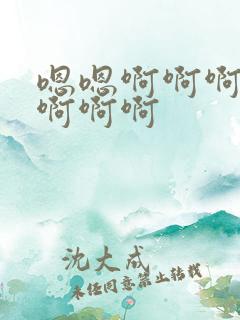 嗯嗯啊啊啊
啊啊啊
沈大成
未经同意禁止转载